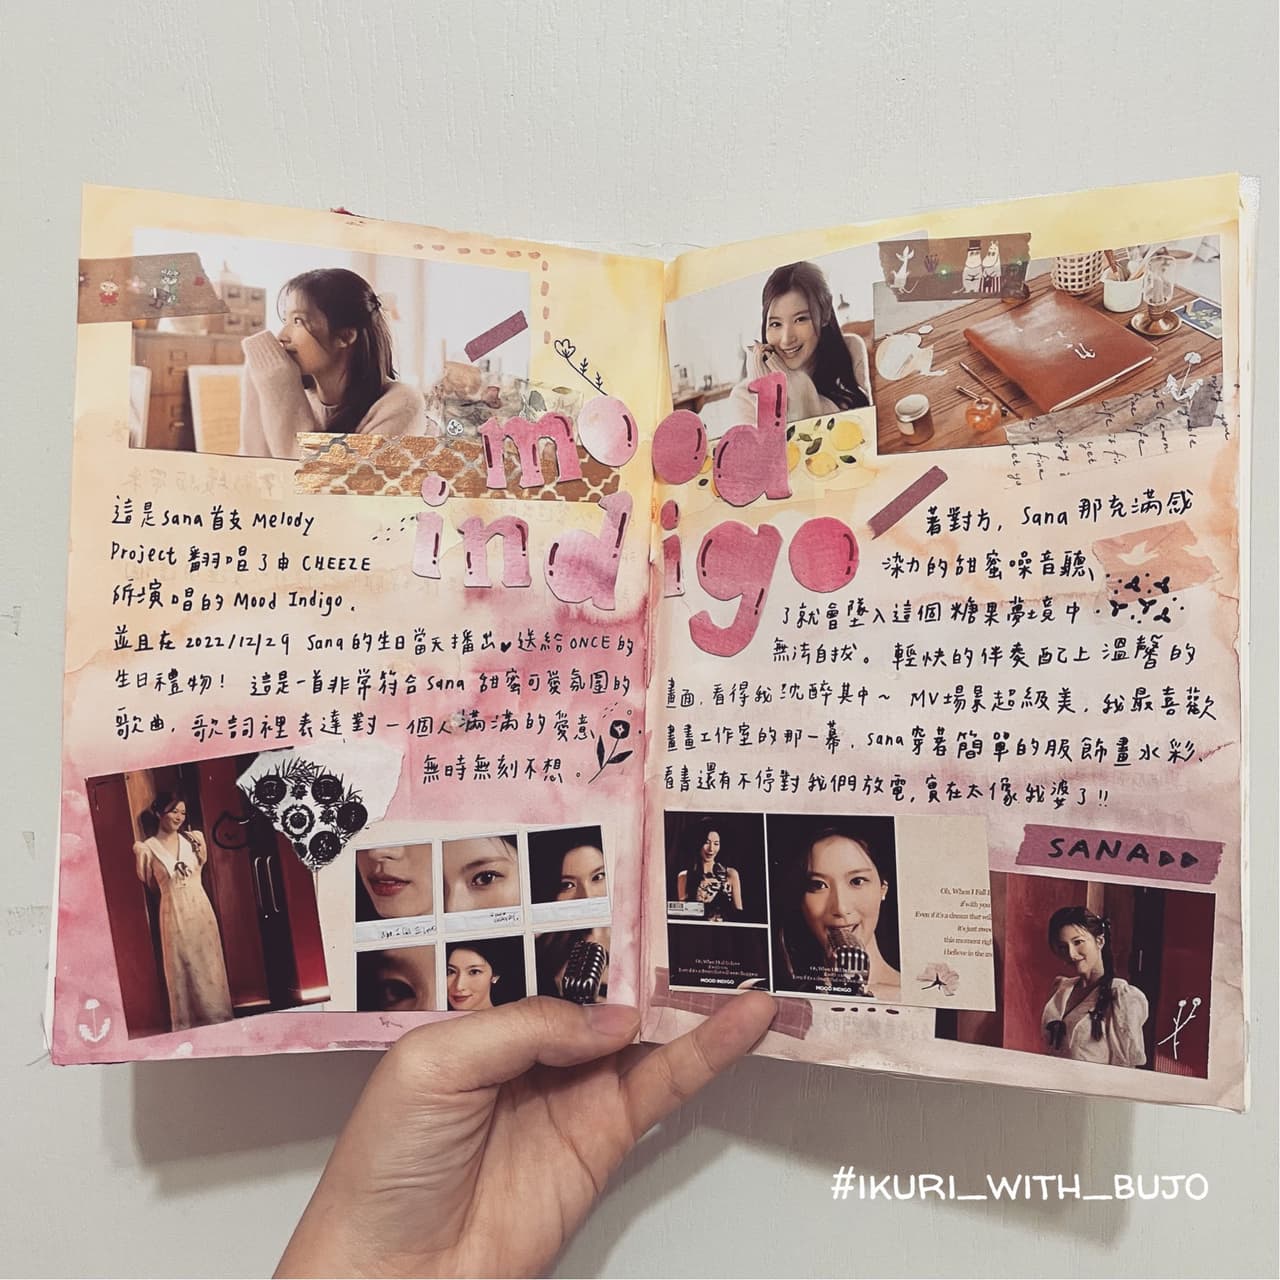 mood
indigo
這是sana首支 Melody
Project 翻唱了由 CHEEZE
所演唱的 Mood Indigo.
並且在 2022/12/29 Sana 的生日當天播出♥送給ONCE的
生日禮物! 這是一首非常符合 Sana 甜蜜可愛氛圍的
歌曲, 歌詞裡表達對一個人滿滿的愛意,
無時無刻不想。
著對方, Sana 那充滿感
染力的甜蜜噪音聽
了就會墜入這個糖果夢境中
無法自拔。輕快的伴奏配上溫馨的
畫面, 看得我沈醉其中~ MV場景超級美, 我最喜歡
畫畫工作室的那一幕, sana穿著簡單的服飾畫水彩、
看書還有不停對我們放電, 實在太像我婆了!!
MOOD INDIGO
MOOD INDIGO
Oh, When I Fall I
if with you
Even if it's a dream that will
it's just
this moment righ
I believe in the
SANA▶▶
#IKURI_WITH_BUJO